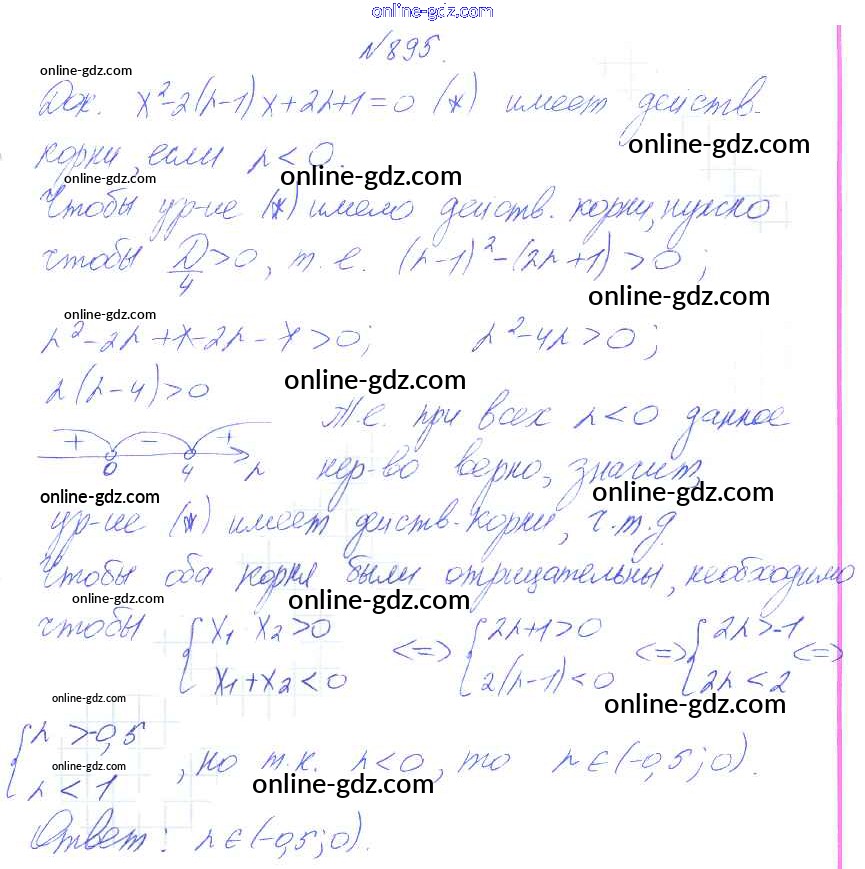 online-gdz.com
№895.
online-gdz.com
Док. x²-2(h-1)x+2h+1=0 (*) имеет действ-
online-gdz.com
корни, если h<0.
online-gdz.com
online-gdz.com
Чтобы ур-ие (*) имело действ. корни, нужно
чтобы D/4>0, т.е. (h-1)²-(2h+1)>0;
online-gdz.com
online-gdz.com
h²-2h+1-2h-1>0; h²-4h>0;
h(h-4)>0
online-gdz.com
+ - +
0 4 h
Т.е. при всех h<0 данное
нер-во верно, значит,
online-gdz.com
online-gdz.com
ур-ие (*) имеет действ-корни, ч.т.д.
Чтобы оба корня были отрицательны, необходимо
online-gdz.com
online-gdz.com
чтобы { x₁ x₂>0 x₁+x₂<0 <=> { 2h+1>0 2(h-1)<0 <=> { 2h>-1 2h<2 <=>
online-gdz.com
online-gdz.com
{ h>-0,5 h<1 , но т.к. h<0, то h∈(-0,5;0).
online-gdz.com
online-gdz.com
Ответ: h∈(-0,5;0).